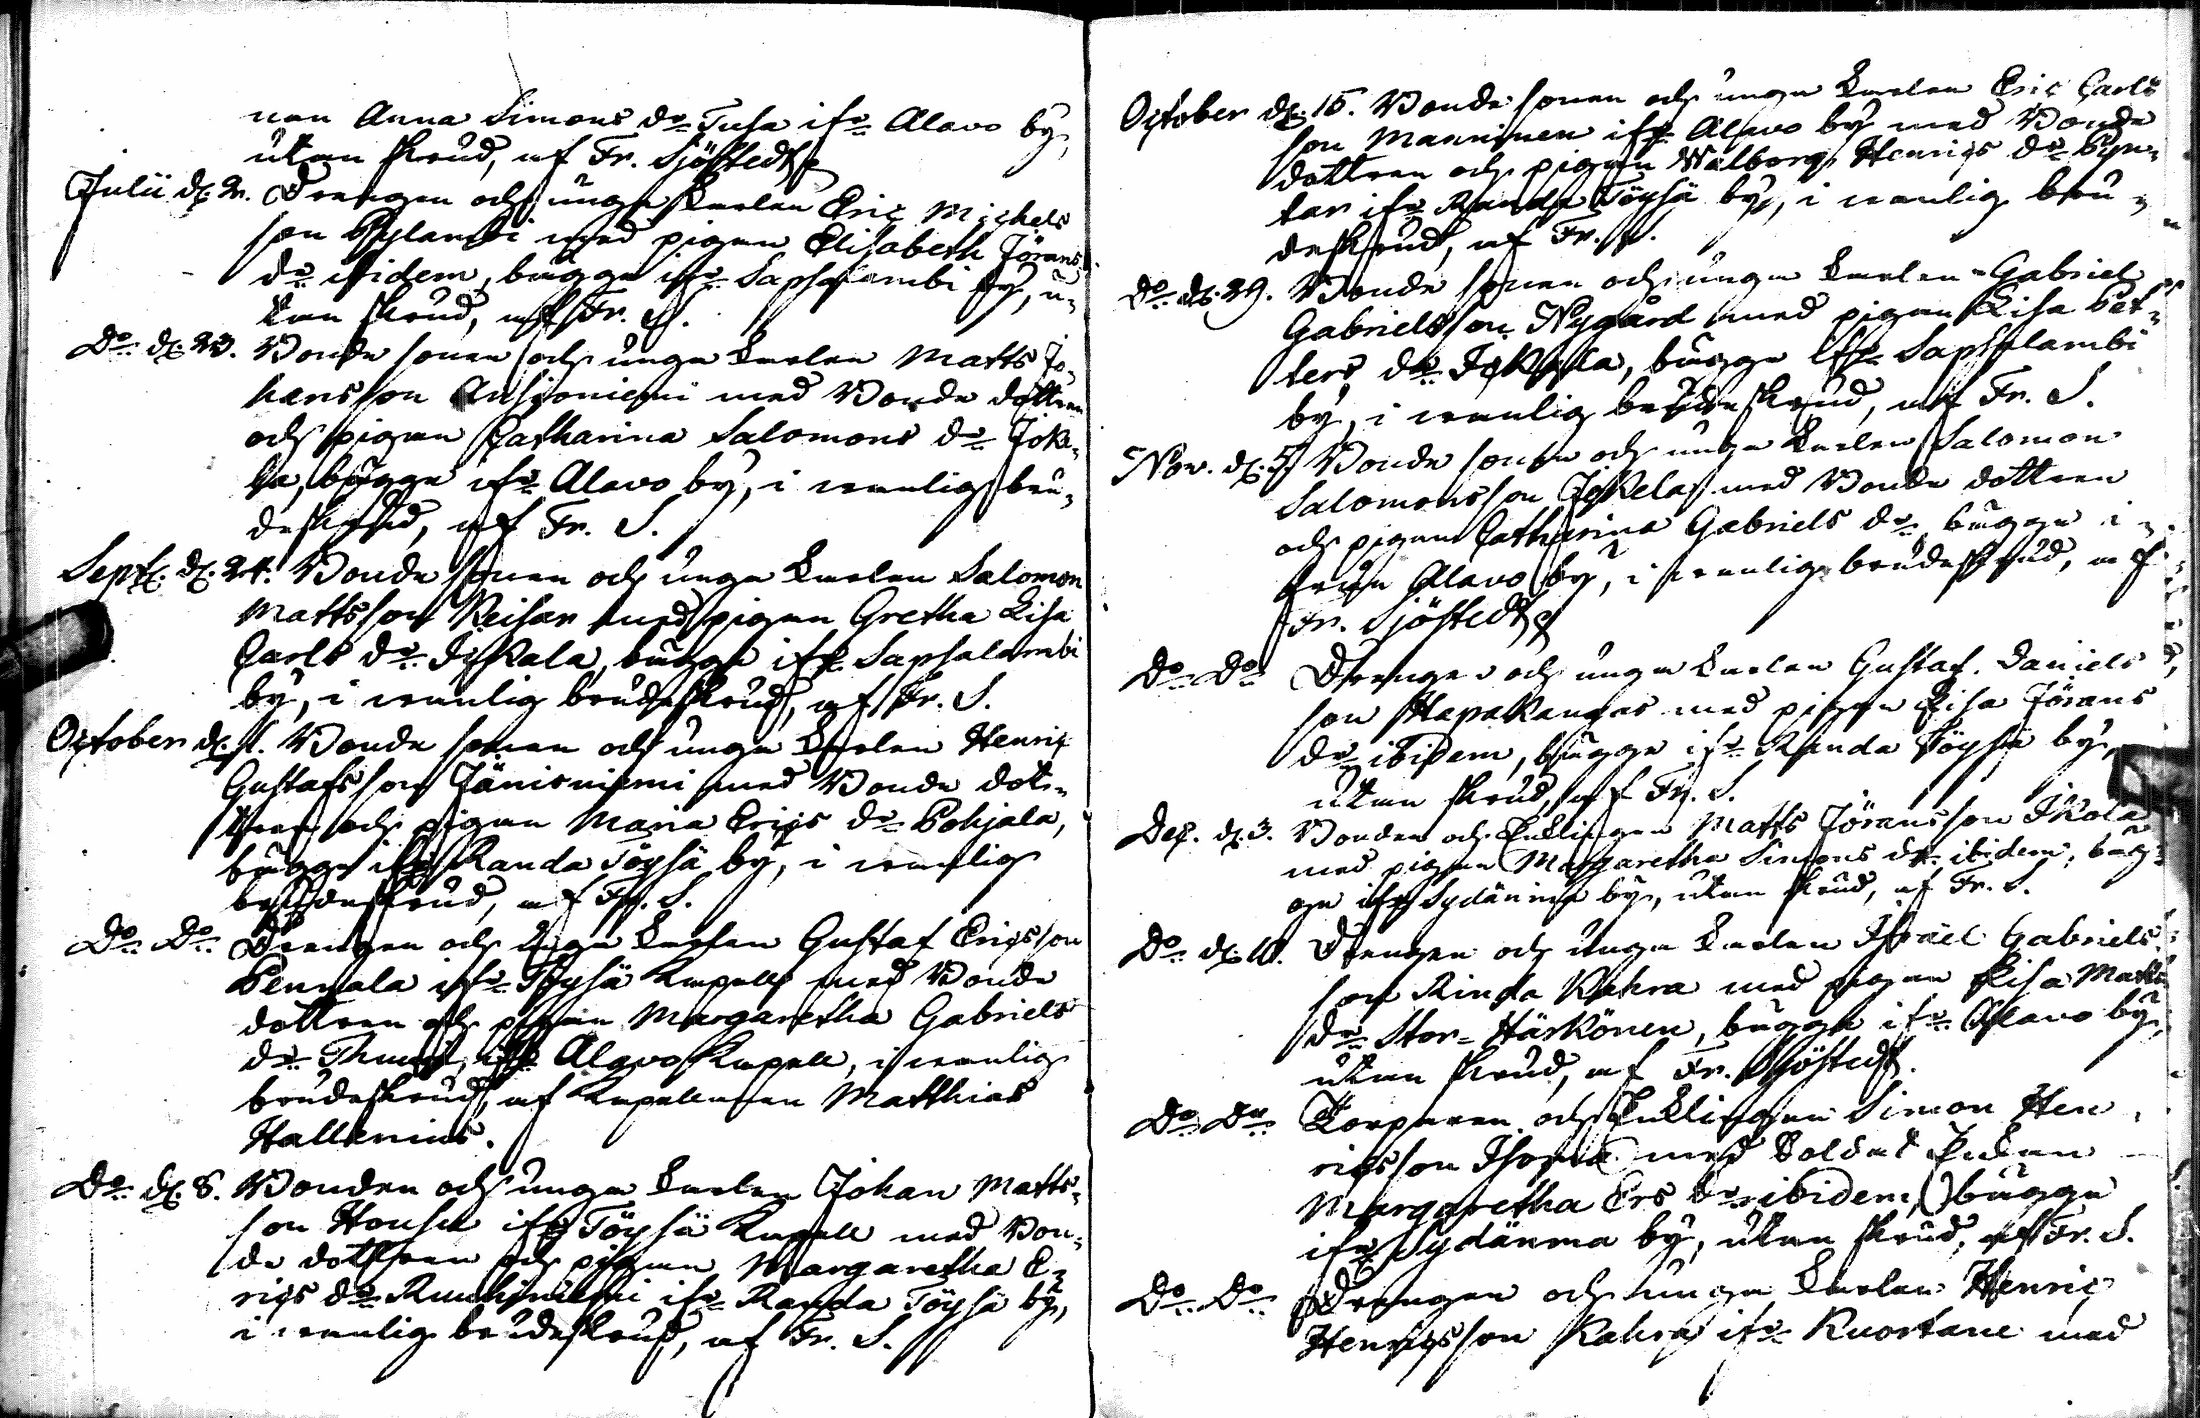 nan Anna Simons dr Tusa ifr. Alavo by,
utan skrud, af Fr. Sjöstedt
Julii d. 2. Drengen och unga karlen Eric Michels
son Rylambi med pigan Elisabeth Jörans
dr ibidem, bägge ifr. Sapsalambi by, u=
tan skrud, af Fr. S.
Do d. 23. Bonde sonen och unga karlen Matts Jo=
hansson Ansioniemi med Bonde dottren
och pigan Catharina Salomons dr Joke=
la, bägge ifr. Alavo by, i vanlig bru=
deskrud, af Fr. S.
Sept. d. 24. Bonde sonen och unga karlen Salomon
Mattsson Keisar med pigan Gretha Lisa
Carls dr Jokala, bägge ifr. Sapsalambi
by, i vanlig brudeskrud, af Fr. S.
October d. 1. Bonde sonen och unga karlen Henric
Gustafsson Jänisniemi med Bonde dot=
tren och pigan Maria Erics dr Pohjala,
bägge ifr. Randa Töysä by, i vanlig
brudeskrud, af Fr. S.
Do Do Drengen och unga karlen Gustaf Ericsson
Pennala ifr. Töysä kapell med Bonde
dottren och pigan Margaretha Gabriels
dr ifr. Alavo kapell, i vanlig
brudeskrud, af kapellanen Matthias
Hallenius.
Do d. 8. Bonden och unga karlen Johan Matts=
son Housu ifr. Töysä kapell med Bon=
de dottren och pigan Margaretha E=
rics dr ifr. Randa Töysä by,
i vanlig brudeskrud, af Fr. S.
October d. 15. Bonde sonen och unga karlen Eric Carls
son Manninen ifr. Alavo by med Bonde
dottren och pigan Walborg Henrics dr Pyn=
tar ifr. Randa Töysä by, i vanlig bru=
deskrud, af Fr. S.
Do d. 29. Bonde sonen och unga karlen Gabriel
Gabrielsson Nygård med pigan Lisa Pet=
ters dr Jokela, bägge ifr. Sapsalambi
by, i vanlig brudeskrud, af Fr. S.
Nov. d. 5. Bonde sonen och unga karlen Salomon
Salomonsson Jokela med Bonde dottren
och pigan Catharina Gabriels dr bägge i=
från Alavo by, i vanlig brudeskrud, af
Fr. Sjöstedt
Do Do Drengen och unga karlen Gustaf Daniels
son Hapakangas med pigan Lisa Jörans
dr ibidem, bägge ifr. Randa Töysä by,
utan skrud, af Fr. S.
Dec. d. 3. Bonden och Enklingen Matts Jöransson Ikola
med pigan Margaretha Simons dr ibidem, bäg=
ge ifr. Sydänma by, utan skrud, af Fr. S.
Do d. 10. Drengen och unga karlen Israel Gabriels
son Rinda Kahra med pigan Lisa Matts
dr Stor=Härkönen, bägge ifr. Alavo by,
utan skrud, af Fr. Sjöstedt.
Do Do Torparen och Enklingen Simon Hen
ricsson med Soldat Enkan
Margaretha Ers dr ibidem, bägge
ifr. Sydänma by, utan skrud, af Fr. S.
Do Do Drengen och unga karlen Henric
Henricsson Kahra ifr. Kuortane med